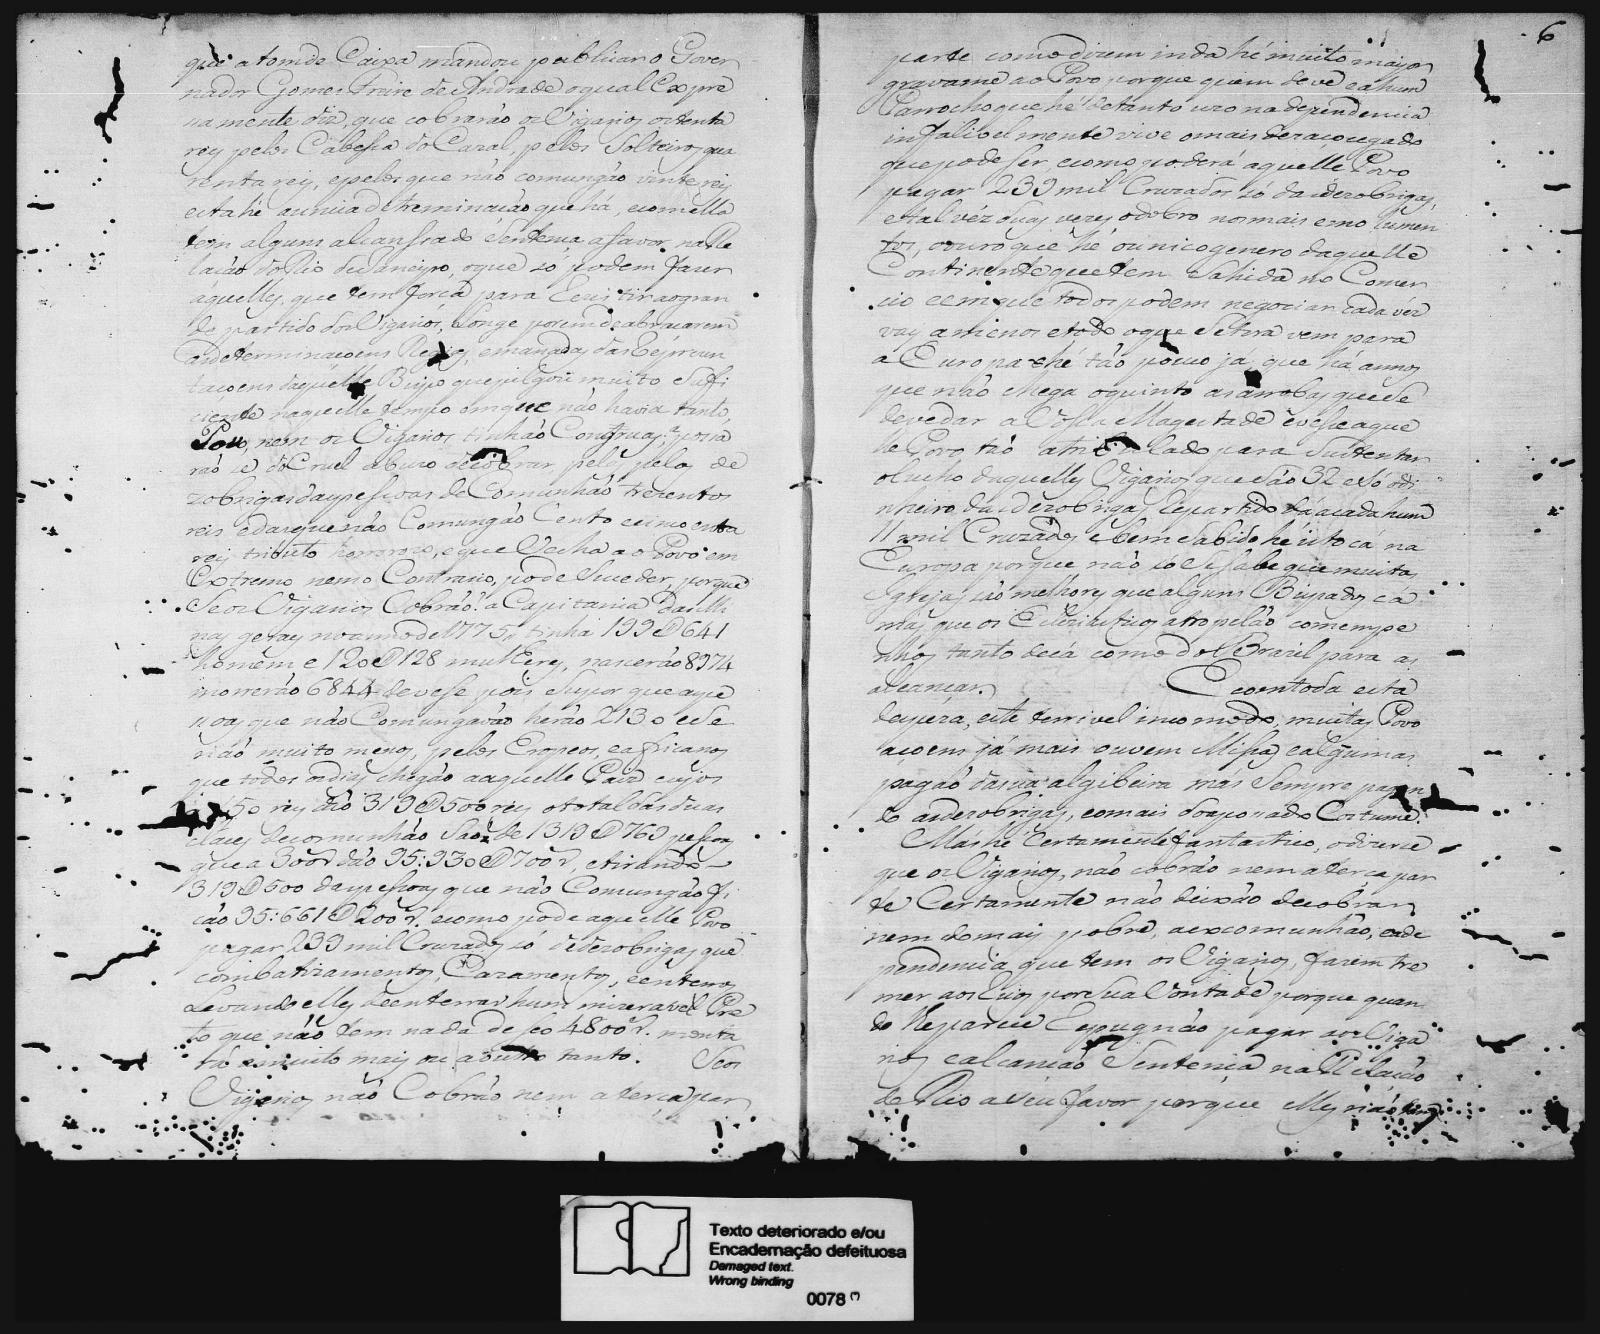 que a tom de Caixa mandou publicar o Gover
nador Gomes Freire de Andrade o qual Expre
samente diz, que cobrarão os Vigarios oitenta
reis pelos Cabessa do Cazal, pelos Solteiros qua
renta reis, e pelos que não comungão vinte reis
esta hé a unica detreminacão que há, e com ella
tem alguns alcansado Sentenca a favor na Re
lacão do Rio de Janeiro, o que só podem fazer
áquelles, que tem forca para rezistir ao gran
de partido dos Vigarios, Longe porem de abracarem
as determinacoens Regias, emanadas das
tacoens daquelle Bispo que julgou muito Sufi
ciente naquelle tempo em que não havia tanto
Povo, nem os Vigarios tinhão Congruas:
rão o Cruel abuzo de cobrar pelas de
zobrigas das pessoas de Comunhão trezentos
reis e das que não Comungão Cento e sincoenta
reis tributo horrorozo, e que Vecha ao Povo em
Extremo nem o Contrario, pode Suceder, porque
Se os Vigarios Cobrão: a Capitania das Mi
nas geraes no anno de 1775, tinha 199@641
homens e 120@128 mulheres, nascerão 8974
morrerão 6844 devese pois Supor que as pe
soas que não Comungavão herão 2130 e se
rião muito menos, pelos Eropeos, e africanos
que todos os dias chegão aaquelle Paiz cujos
a 150 reis dão 319@500 reis o total das duas
clases de comunhão Sao de 1319@769 pessoas
que a 300r dão 95:930@700r, e tirando
319@500 das pessoas que não Comungão fi
cão 95:661@200r. e como pode aquelle Povo
pagar 239 mil Cruzados só de dezobrigas que
com batizamentos, Cazamentos, e enterros
Levando elles de enterrar hum mizeravel Pre
to que não tem nada de seo 4800r. monta
rá a muito mais ou a outro tanto. Se os
Vigarios não Cobrão nem a terca par
6
parte como dizem inda hé muito mayor
gravame ao Povo porque quem deve a hum
Parrocho que hé de tanto uzo na dependencia
infalivelmente vive o mais dezacocegado
que pode ser e como poderá aquelle Povo
pagar 239 mil Cruzados só das dezobrigas,
e talvéz duas vezes o dobro nos mais emolumen
tos, o ouro que hé o unico genero daquelle
Continente que tem Sahida no Comer
cio e em que todos podem negociar cada vêz
vay a menos e todo o que Se tira vem para
a Europa e hé tão pouco ja que há annos
que não chega o quinto as arrobas que Se
devem dar a Vossa Magestade e vese aque
le Povo tão atribulado para Sustentar
o Luxo daquelles Vigarios que são 32 e Só o di
nheiro das dezobrigas Repartido dá a cada hum
11 mil Cruzados e bem Sabido hé isto cá na
Europa porque não só Se Sabe que muitas
Igrejas são melhores que alguns Bispados cá
mas que os Eclesiasticos atropelão com empe
nhos tanto de cá como do Brazil para as
alcancar. E com toda esta
despeza, este terrivel incomodo, muitas Povo
acoens já mais ouvem Missa e algumas
pagão da sua algibeira mas Sempre pagan
do as dezobrigas, e o mais do apozado Costume.
Mas hé Certamente fantastico, o dizerse
que os Vigarios, não cobrão nem a terca par
te Certamente não deixão de cobrar
nem do mais pobre, a excomunhão, e a de
pendencia que tem os Vigarios, fazem tre
mer aos Seus por Sua Vontade porque quan
do Reparão Espugnão pagar aos Viga
rios e alcancão Sentenca na Relacão
do Rio a Seu favor porque elles não tem
Texto deteriorado e/ou
Encadernação defeituosa
Damaged text.
Wrong binding
0078 (*)